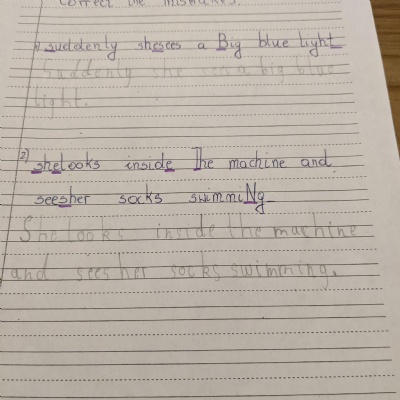 Correct the mistakes.
1) suddenly shesees a Big blue light
Suddenly she sees a big blue
light.
2) shelooks inside The machine and
seesher socks swimmiNg
She looks inside the machine
and sees her socks swimming.